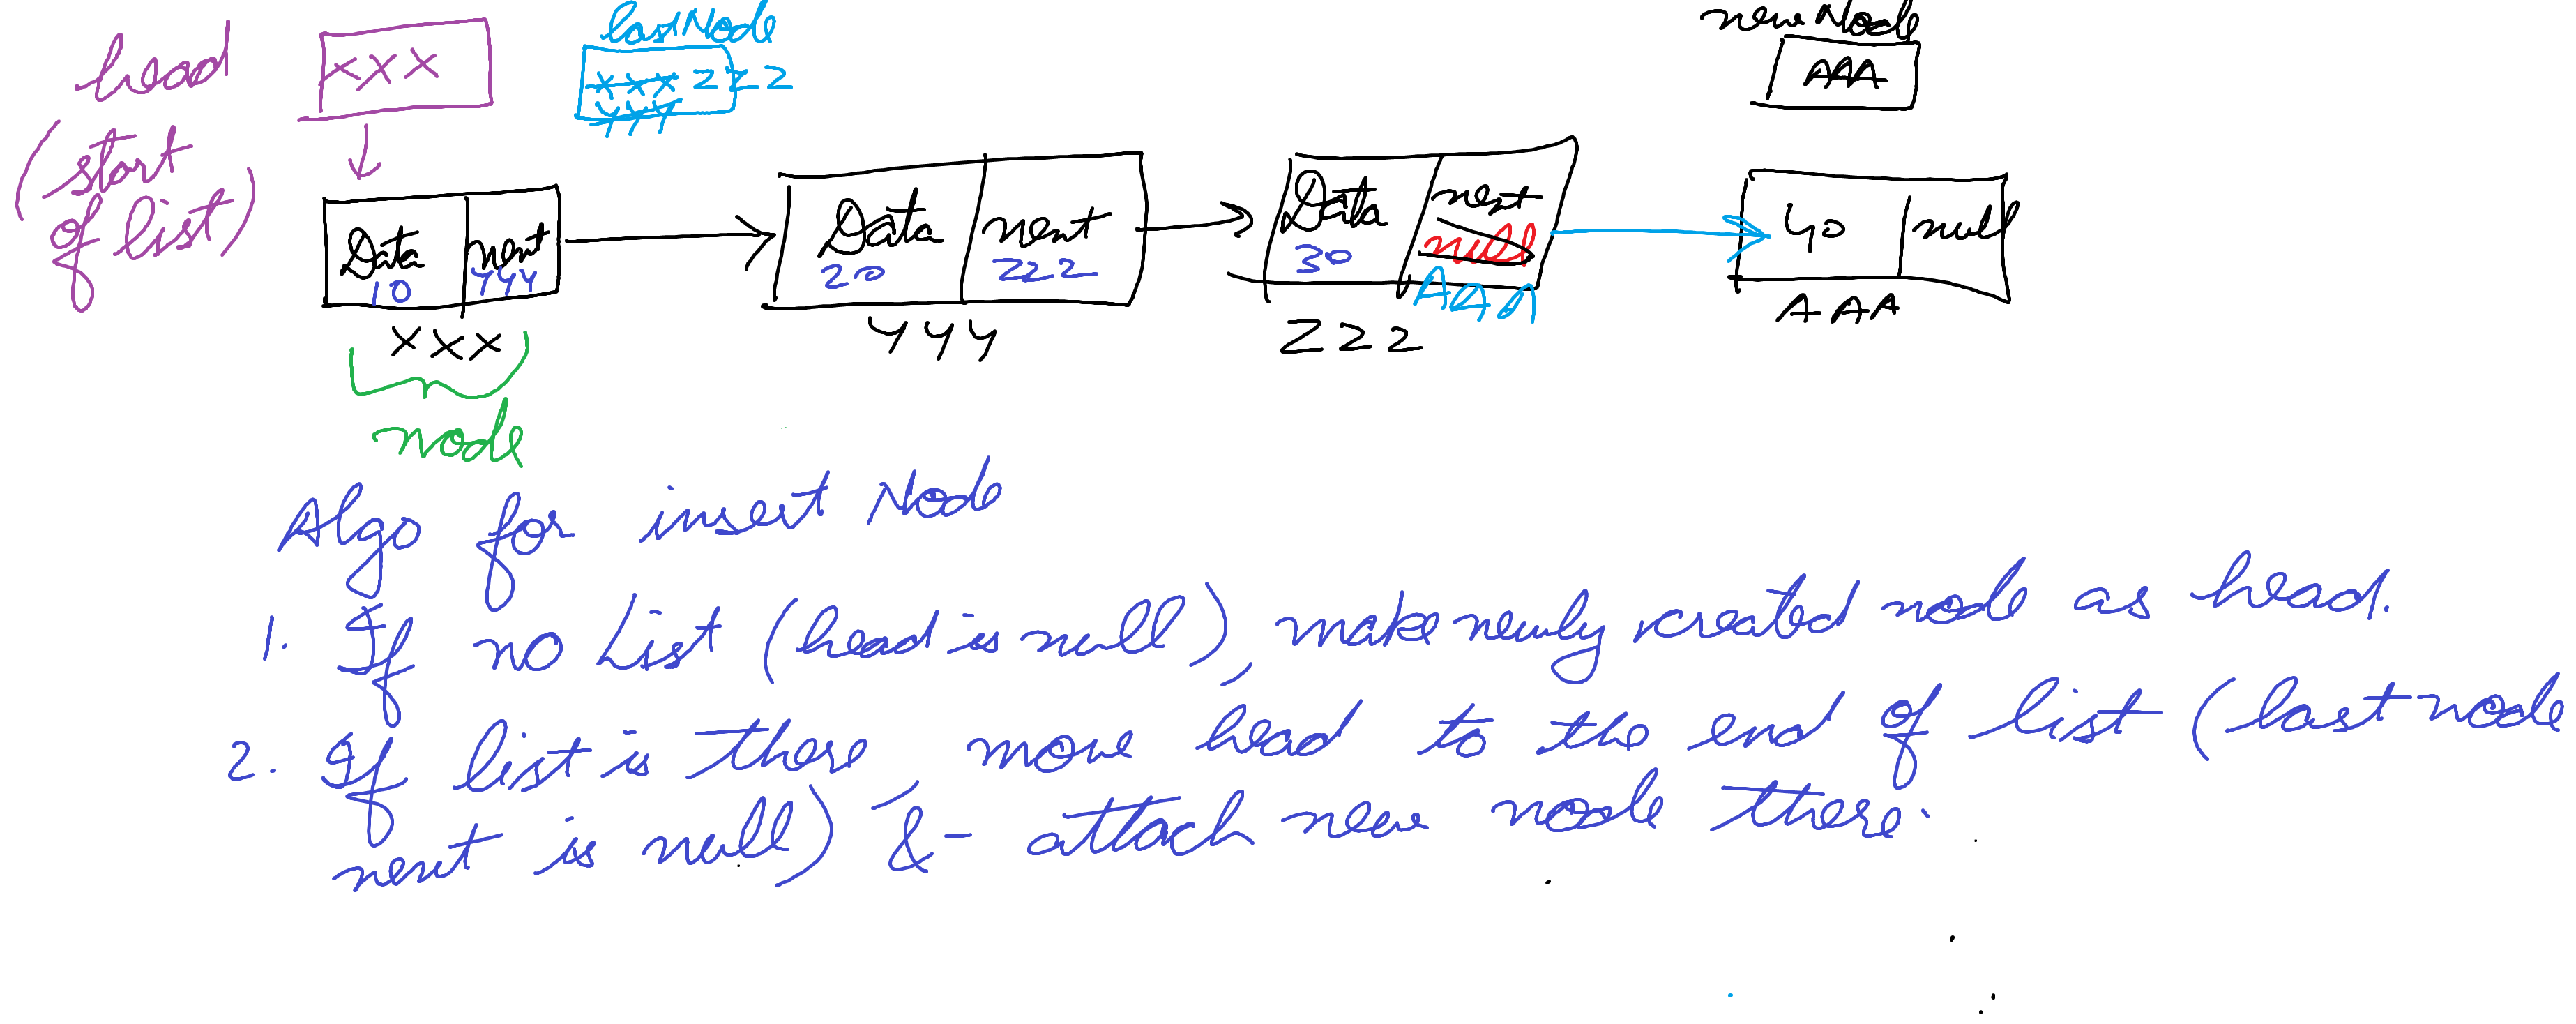 head
(start
of list)
XXX
lastNode
XXX ZZZ
YYY
newNode
AAA
Data next
10 YYY
XXX
node
Data next
20 ZZZ
YYY
Data next
30 null
AAA
ZZZ
40 null
AAA
Algo for insert Node
1. If no List (head is null), make newly created node as head.
2. If list is there, move head to the end of list (last node
next is null) & attach new node there.